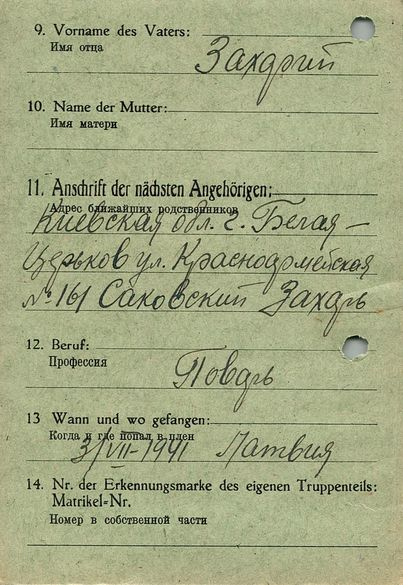 9. Vorname des Vaters:
Имя отца
Захарий
10. Name der Mutter:
Имя матери
11. Anschrift der nächsten Angehörigen:
Адрес ближайших родственников
Киевская обл. г. Белая-
Церьков ул. Красноармейская
№ 161 Саковский Захарь
12. Beruf:
Профессия
Поварь
13 Wann und wo gefangen:
Когда и где попал в плен
3/VII-1941 Латвия
14. Nr. der Erkennungsmarke des eigenen Truppenteils:
Matrikel-Nr.
Номер в собственной части